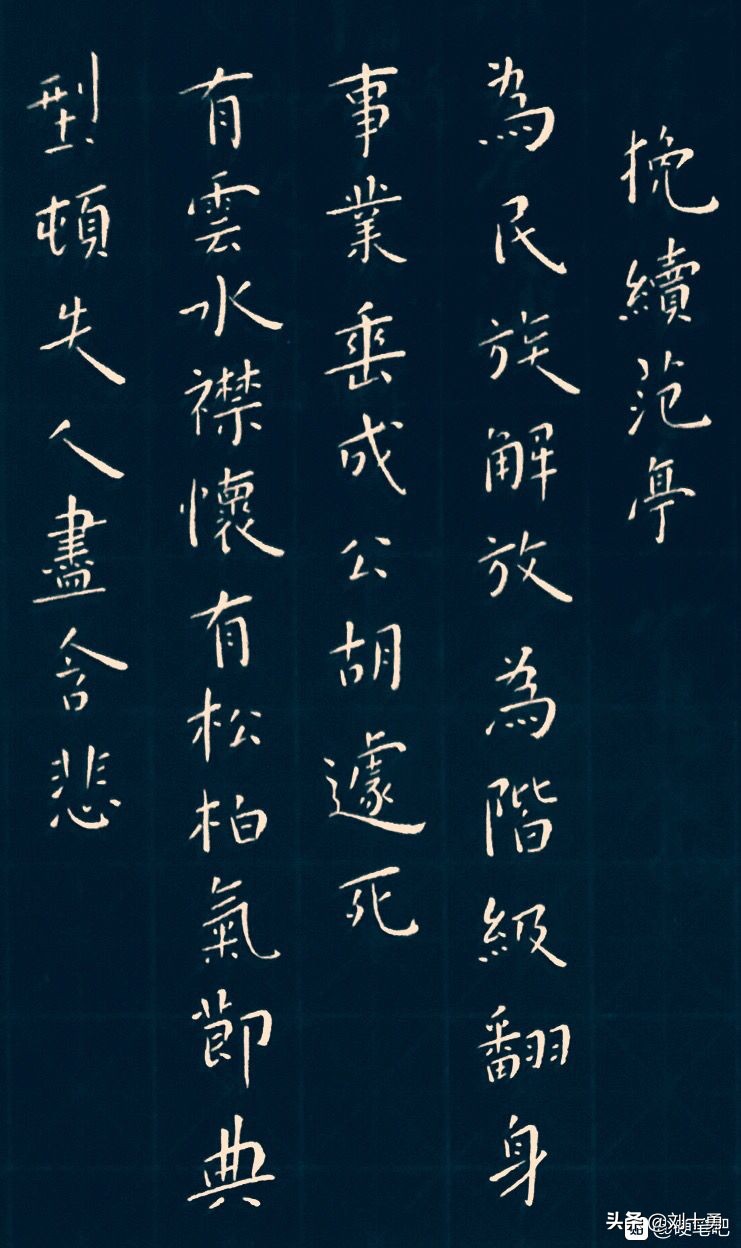 挽續范亭
為民族解放為階級翻身
事業垂成公胡遽死
有雲水襟懷有松柏氣節典
型頓失人盡含悲
头条 @刘十勇
@硬笔吧